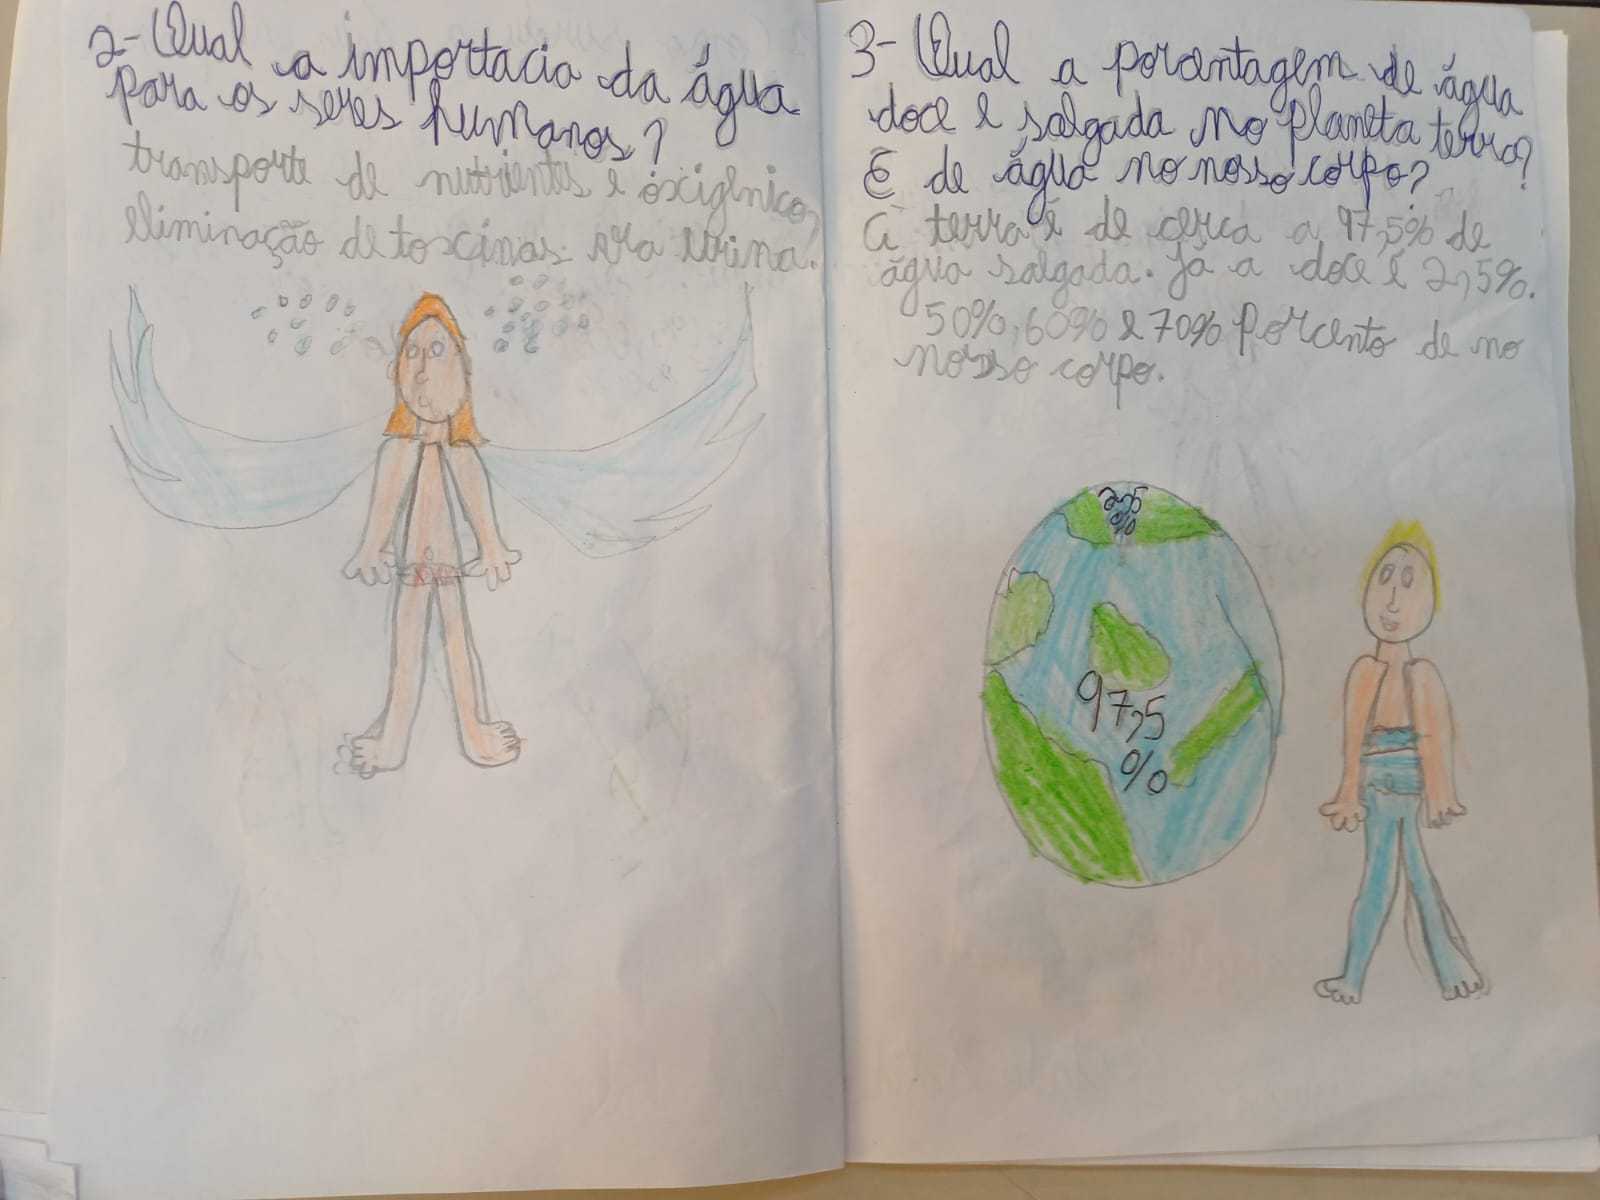 2- Qual a importacia da água
para os seres humanos?
transporte de nutrientes e oxigênico,
eliminação de toscinas. via urina.
3- Qual a porcentagem de água
doce e salgada no planeta terra?
E de água no nosso corpo?
A terra é de cerca a 97,5% de
água salgada. Já a doce é 2,5%.
50%, 60% e 70% porcento de no
nosso corpo.
2,5
%
97,5
%